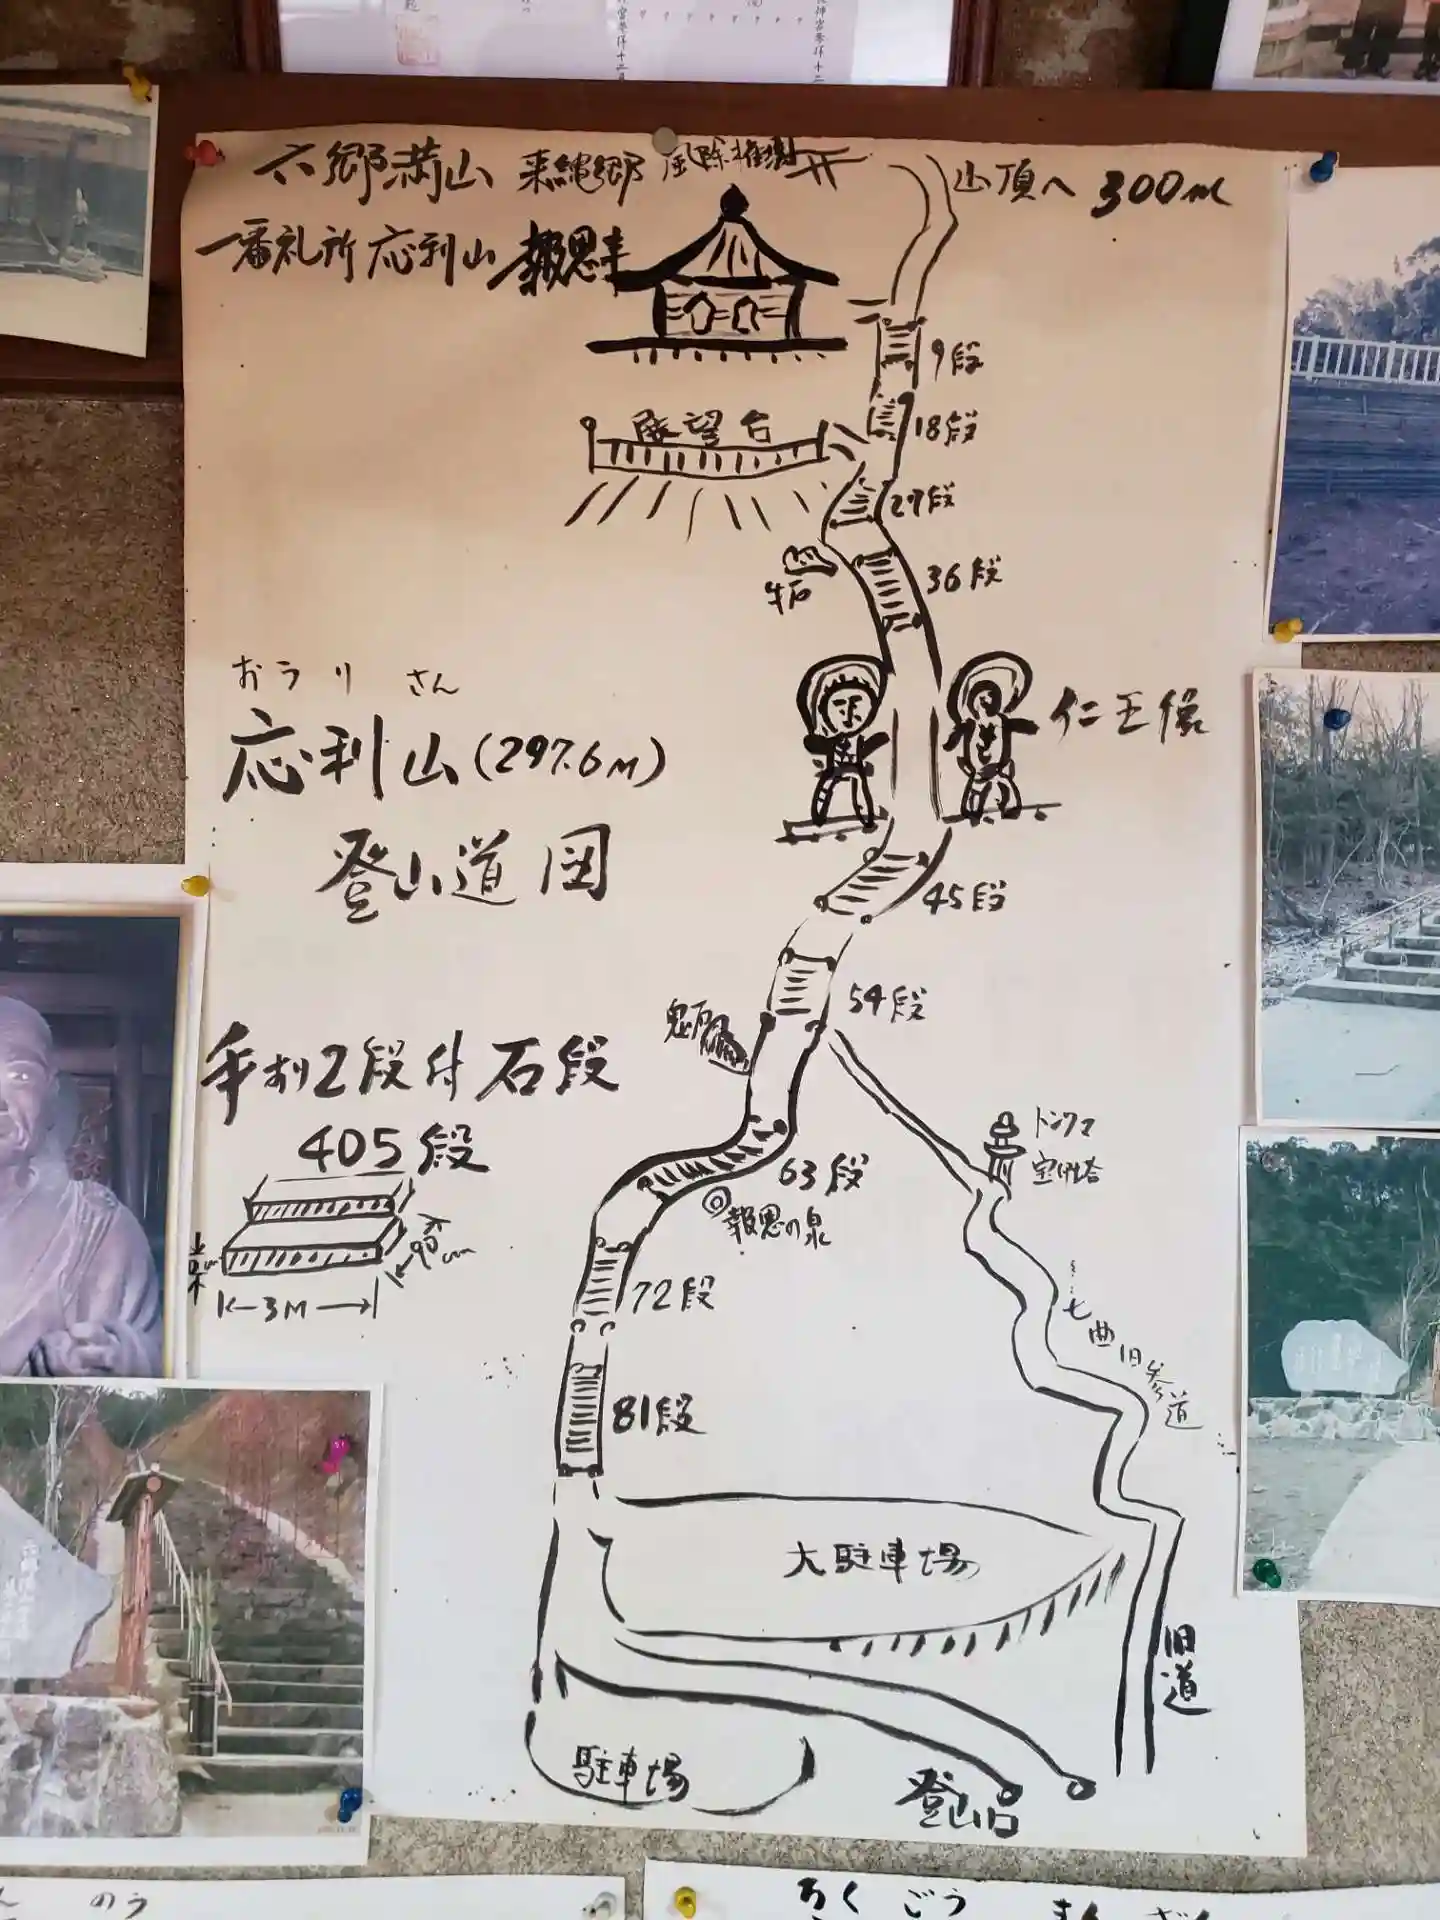 六郷満山 来縄郷
一番札所 応利山 報恩寺
山頂へ 300m
9段
18段
展望台
27段
36段
牛石
仁王像
おうり さん
応利山(297.6M)
登山道図
45段
54段
鬼石
手すり2段付石段
405段
90cm
3M
63段
報恩の泉
トンクマ
宝篋塔
72段
七曲旧参道
81段
大駐車場
旧道
駐車場
登山口
のう
ろくごう まんざん